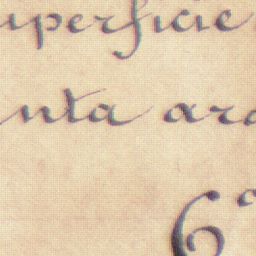 uperficie
nta ara
6º